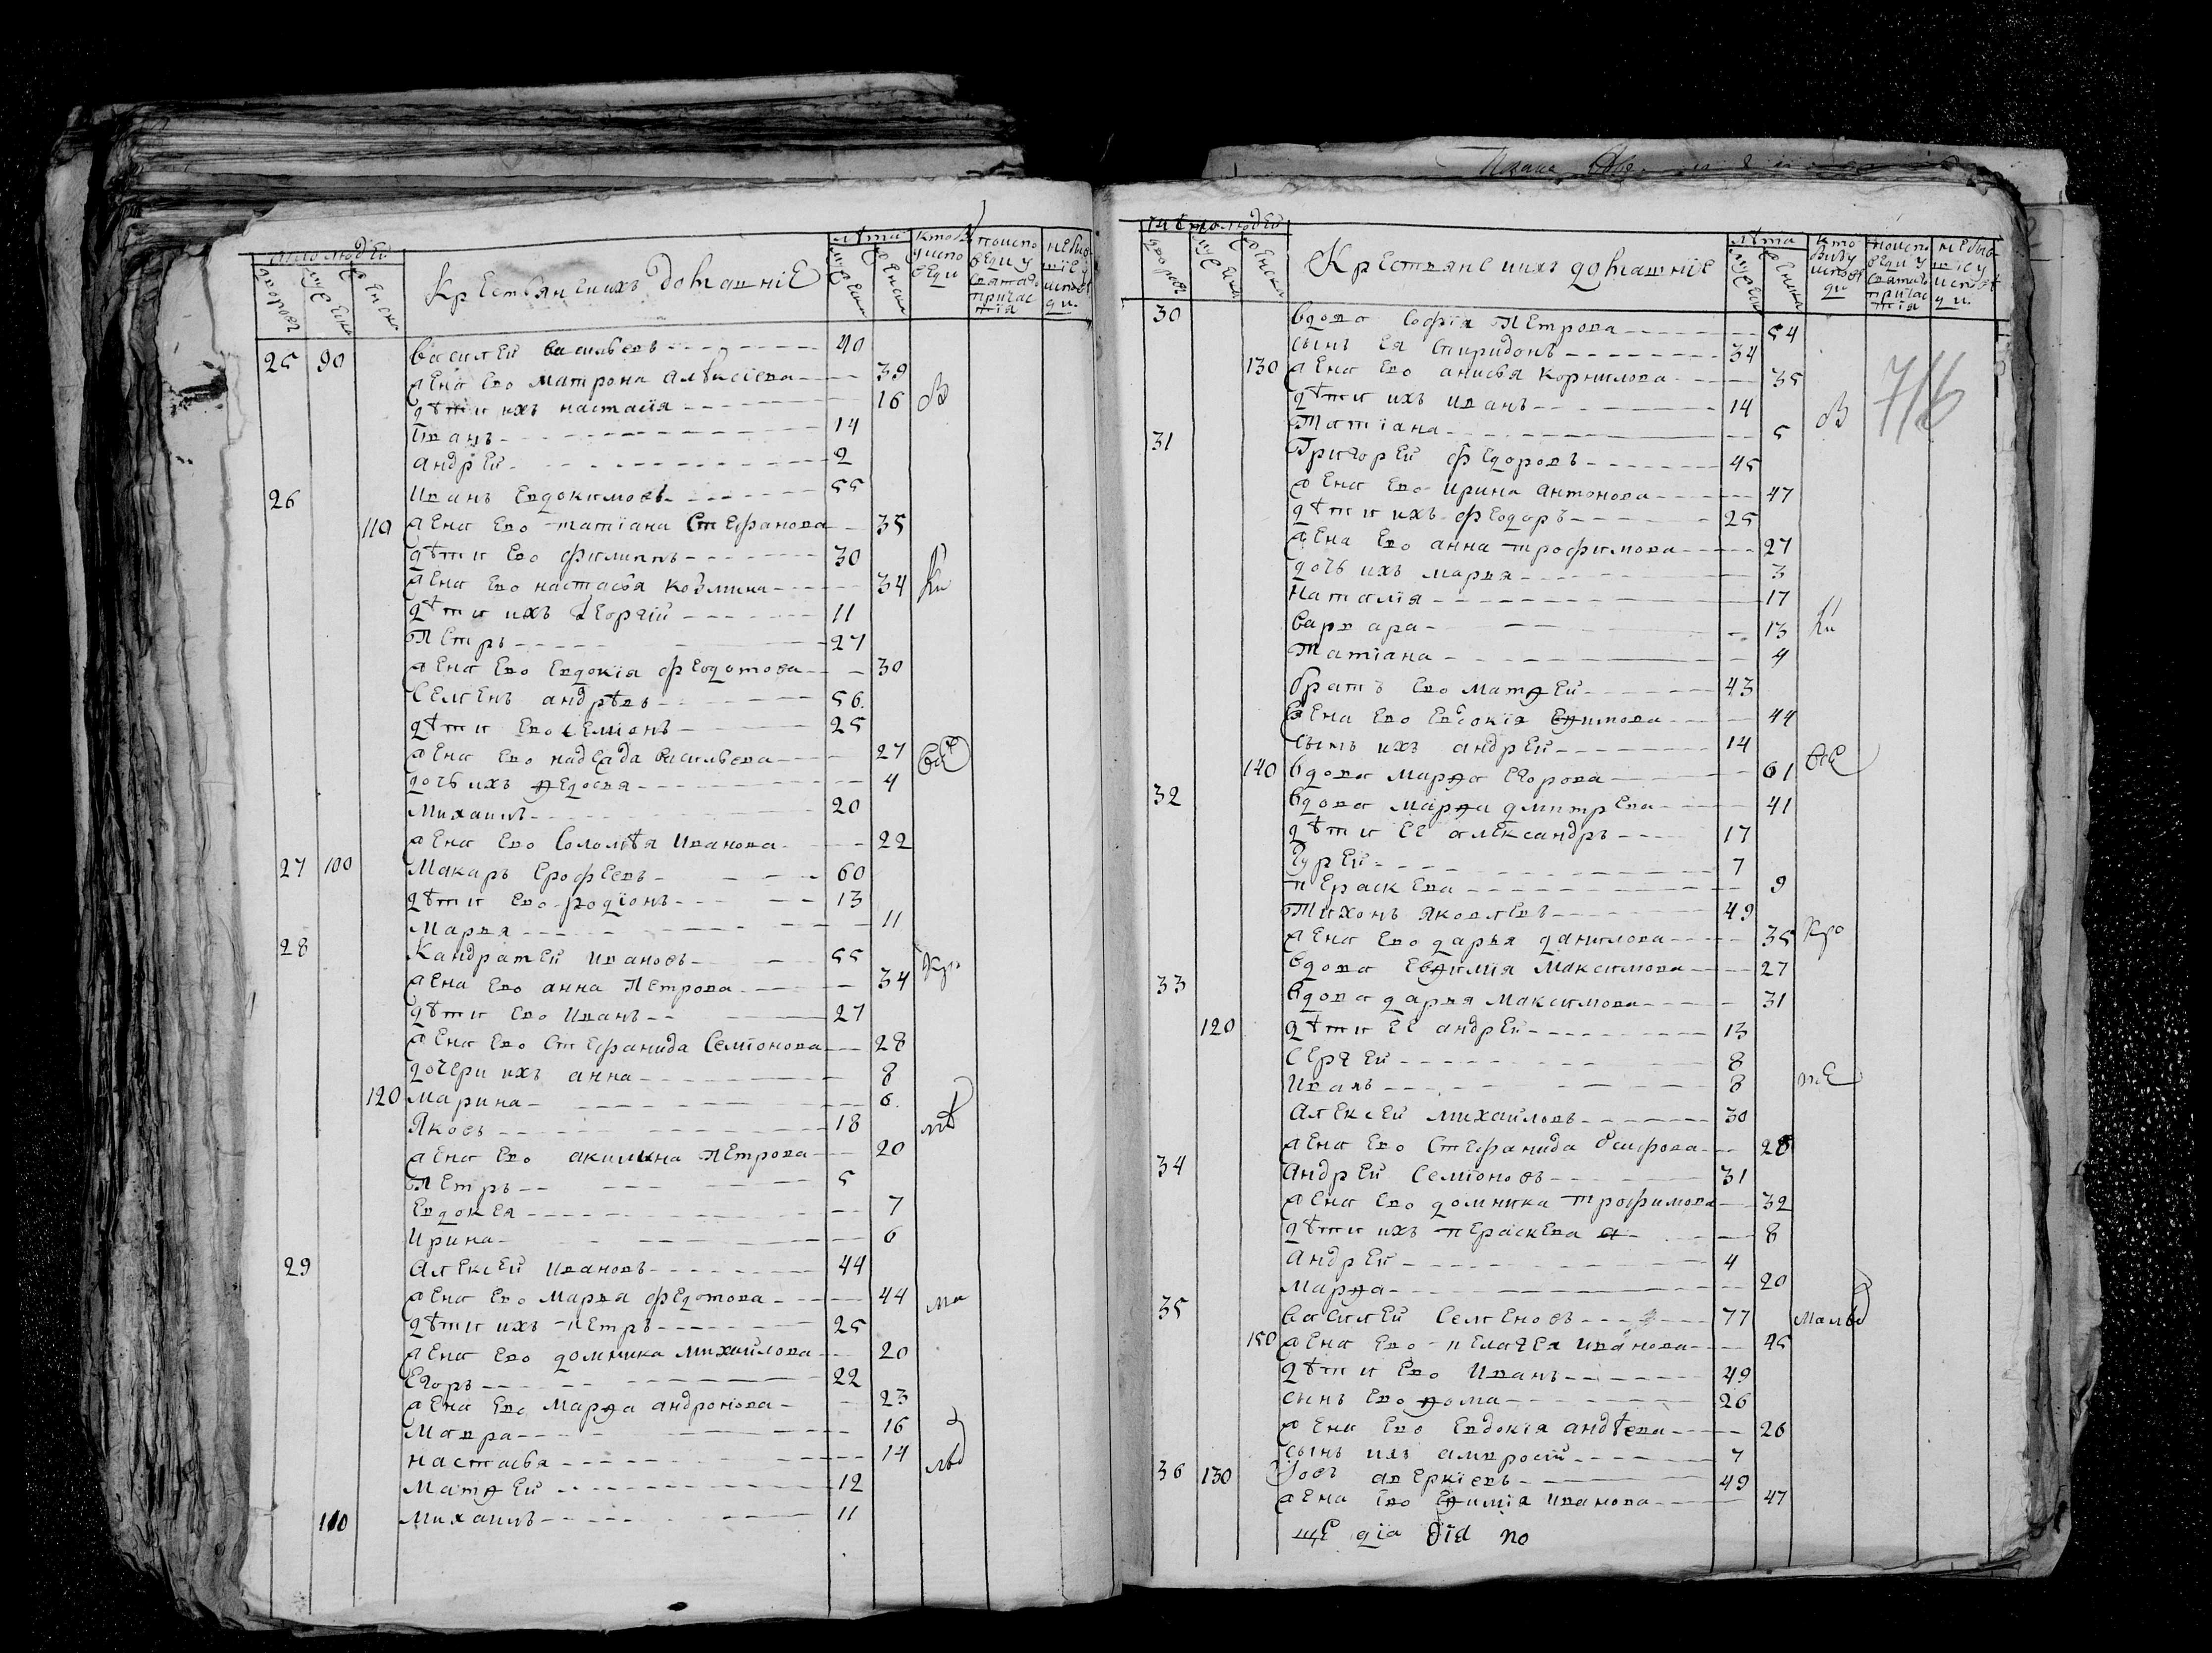 число людей
дворовъ
мужеска
женска
Крестьяне и ихъ домашніе
лѣта
мужеска
женска
кто былъ у исповеди
по исповеди у святаго причастія
не бывшіе у исповеди
25 90 василей васильевъ 40
жена ево матрона алѣксіева 39
дѣти ихъ настасія 16
іванъ 14
андрей 2
26 иванъ евдокимовъ 55
110 жена ево татіана стефанова 35
дѣти ево филиппъ 30
жена ево настасья козмина 34
дѣти ихъ георгій 11
петръ 27
жена ево евдокія феодотова 30
семенъ андрѣевъ 56
дѣти ево семіонъ 25
жена ево надежда васильева 27
дочь ихъ ѳедосья 4
михаилъ 20
жена ево соломѣя иванова 22
27 100 макаръ ерофеевъ 60
дѣти ево родіонъ 13
марья 11
28 кандратей ивановъ 55
жена ево анна петрова 34
дѣти ево иванъ 27
жена ево стефанида семіонова 28
дочери ихъ анна 8
120 марина 6
яковъ 18
жена ево акилина петрова 20
петръ 5
евдокея 7
ирина 6
29 алексей ивановъ 44
жена ево марья федотова 44
дѣти ихъ петръ 25
жена ево домника михайлова 20
егоръ 22
жена ево марѳа андронова 23
мавра 16
настасья 14
матѳей 12
110 михаилъ 11
число людей
дворовъ
мужеска
женска
Крестьяне и ихъ домашніе
лѣта
мужеска
женска
кто былъ у исповеди
по исповеди у святаго причастія
не бывшіе у исповеди
716
30 вдова софія петрова 54
сынъ ея спиридонъ 34
130 жена ево анисья корнилова 35
дѣти ихъ иванъ 14
татіана 5
31 григорей федоровъ 45
жена ево ирина антонова 47
дѣти ихъ феодоръ 25
жена ево анна трофимова 27
дочь ихъ марья 3
наталія 17
варвара 13
татіана 4
братъ ево матѳей 43
жена ево евдокія еѳимова 44
сынъ ихъ андрей 14
140 вдова марѳа егорова 61
32 вдова марѳа дмитрева 41
дѣти ее александръ 17
гурей 7
пераскева 9
тихонъ яковлевъ 49
жена ево дарья данилова 35
вдова евѳимія максимова 27
33 вдова дарья максимова 31
120 дѣти ее андрей 13
сергей 8
иванъ 8
алексей михайловъ 30
жена ево стефанида осифова 28
34 андрей семіоновъ 31
жена ево домника трофимова 32
дѣти ихъ пераскева 8
андрей 4
марѳа 20
35 василей семеновъ 77
150 жена ево пелагея иванова 45
дѣти ево иванъ 49
сынъ ево ѳома 26
жена ево евдокія андѣева 26
сынъ ихъ амвросій 7
36 130 іовъ аверкіевъ 49
жена ево еѳимія иванова 47